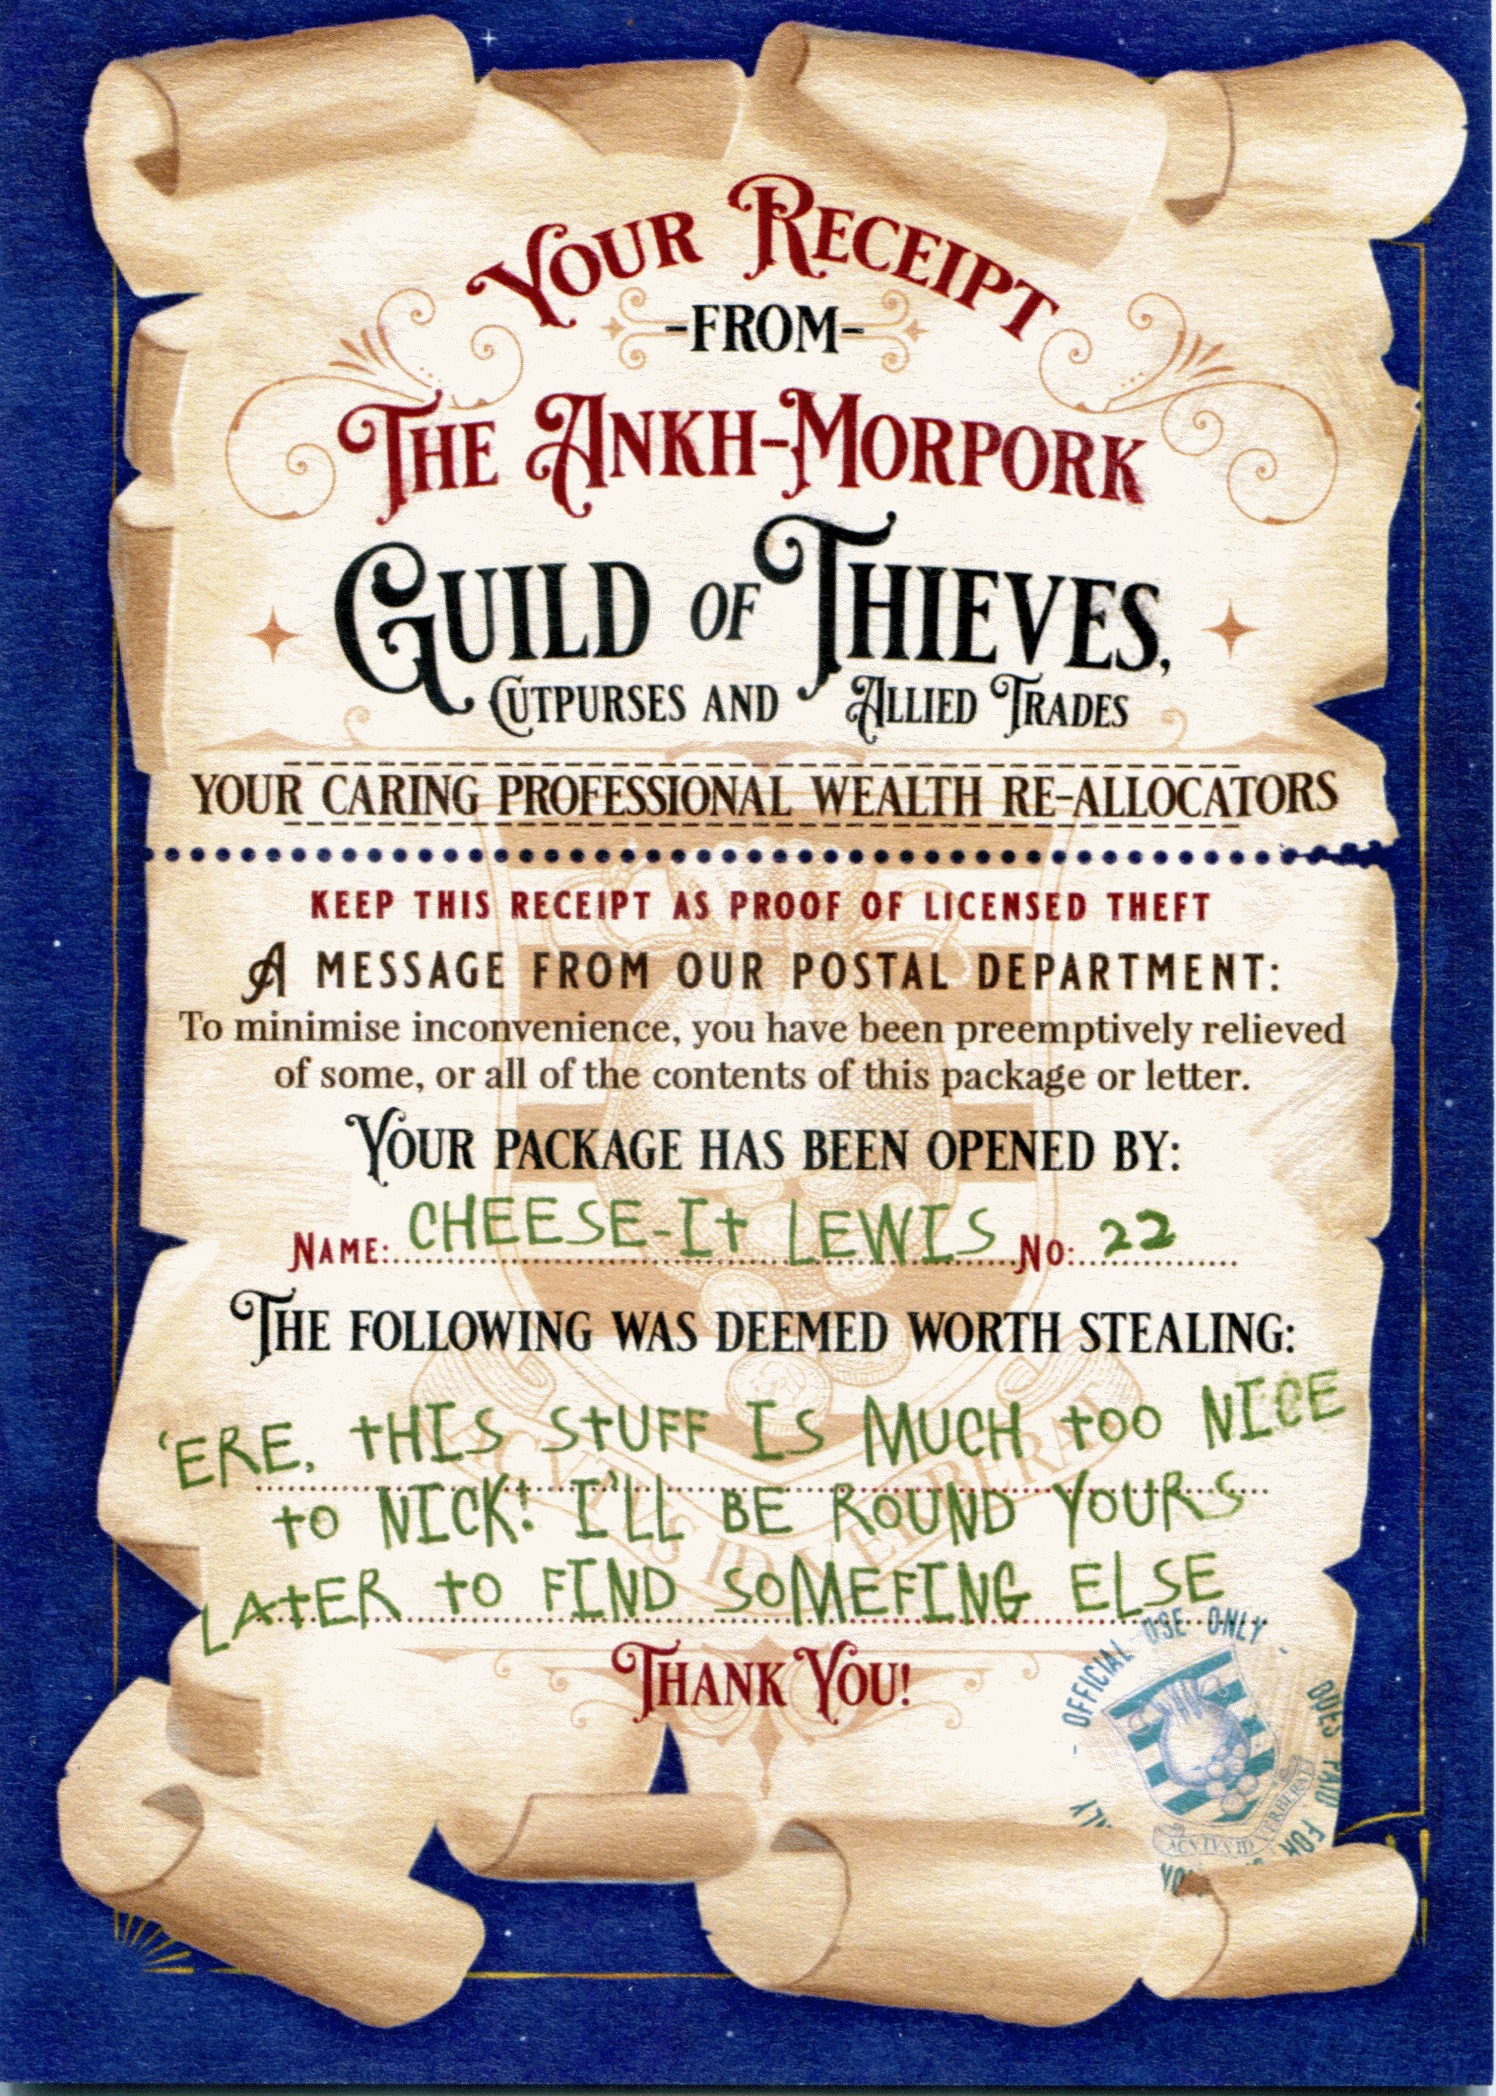 YOUR RECEIPT
-FROM-
THE ANKH-MORPORK
GUILD OF THIEVES,
CUTPURSES AND ALLIED TRADES
YOUR CARING PROFESSIONAL WEALTH RE-ALLOCATORS
KEEP THIS RECEIPT AS PROOF OF LICENSED THEFT
A MESSAGE FROM OUR POSTAL DEPARTMENT:
To minimise inconvenience, you have been preemptively relieved
of some, or all of the contents of this package or letter.
YOUR PACKAGE HAS BEEN OPENED BY:
NAME: CHEESE-It LEWIS NO: 22
THE FOLLOWING WAS DEEMED WORTH STEALING:
'ERE, tHIS StUFF IS MUCH tOO NICE
tO NICK! I'LL BE ROUND YOURS
LAtER tO FIND SOMEFING ELSE
ACVTVS ID VERBERAT
THANK YOU!
- OFFICIAL USE ONLY -
DUES PAID FOR
ACVTVS ID VERBERAT